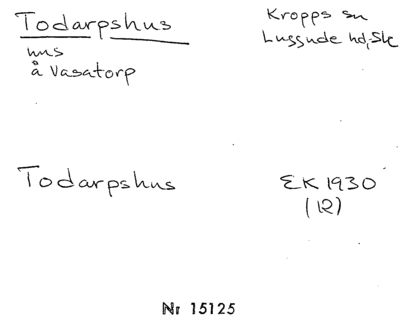 Todarpshus
Kropps sn
hus
Luggude hd, Sk
å Vasatorp
Todarpshus
EK 1930
(12)
Nr 15125